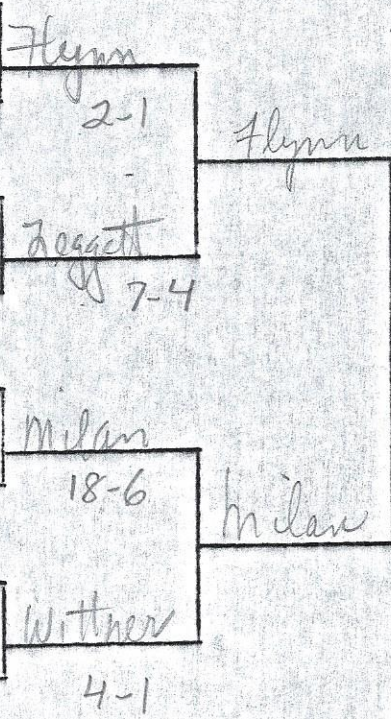 Flynn
2-1
Flynn
Leggett
7-4
Milan
18-6
Milan
Wittner
4-1